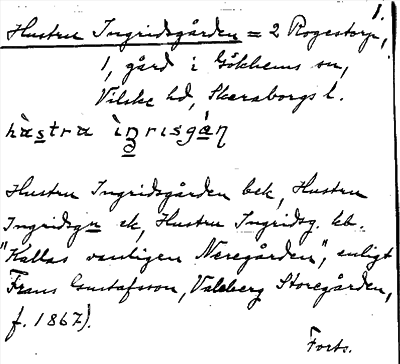 1.
Hustru Ingridsgården = 2 Rogestorp,
1, gård i Gökhems sn,
Vilske hd, Skaraborgs l.
hàstra ìnrisgán
Hustru Ingridsgården bek, Hustru
Ingridsgn ek, Hustru Ingridsg. kb.
"Kallas vanligen Neregården", enligt
Frans Gustafsson, Valeberg Storegården,
f. 1867).
Forts.